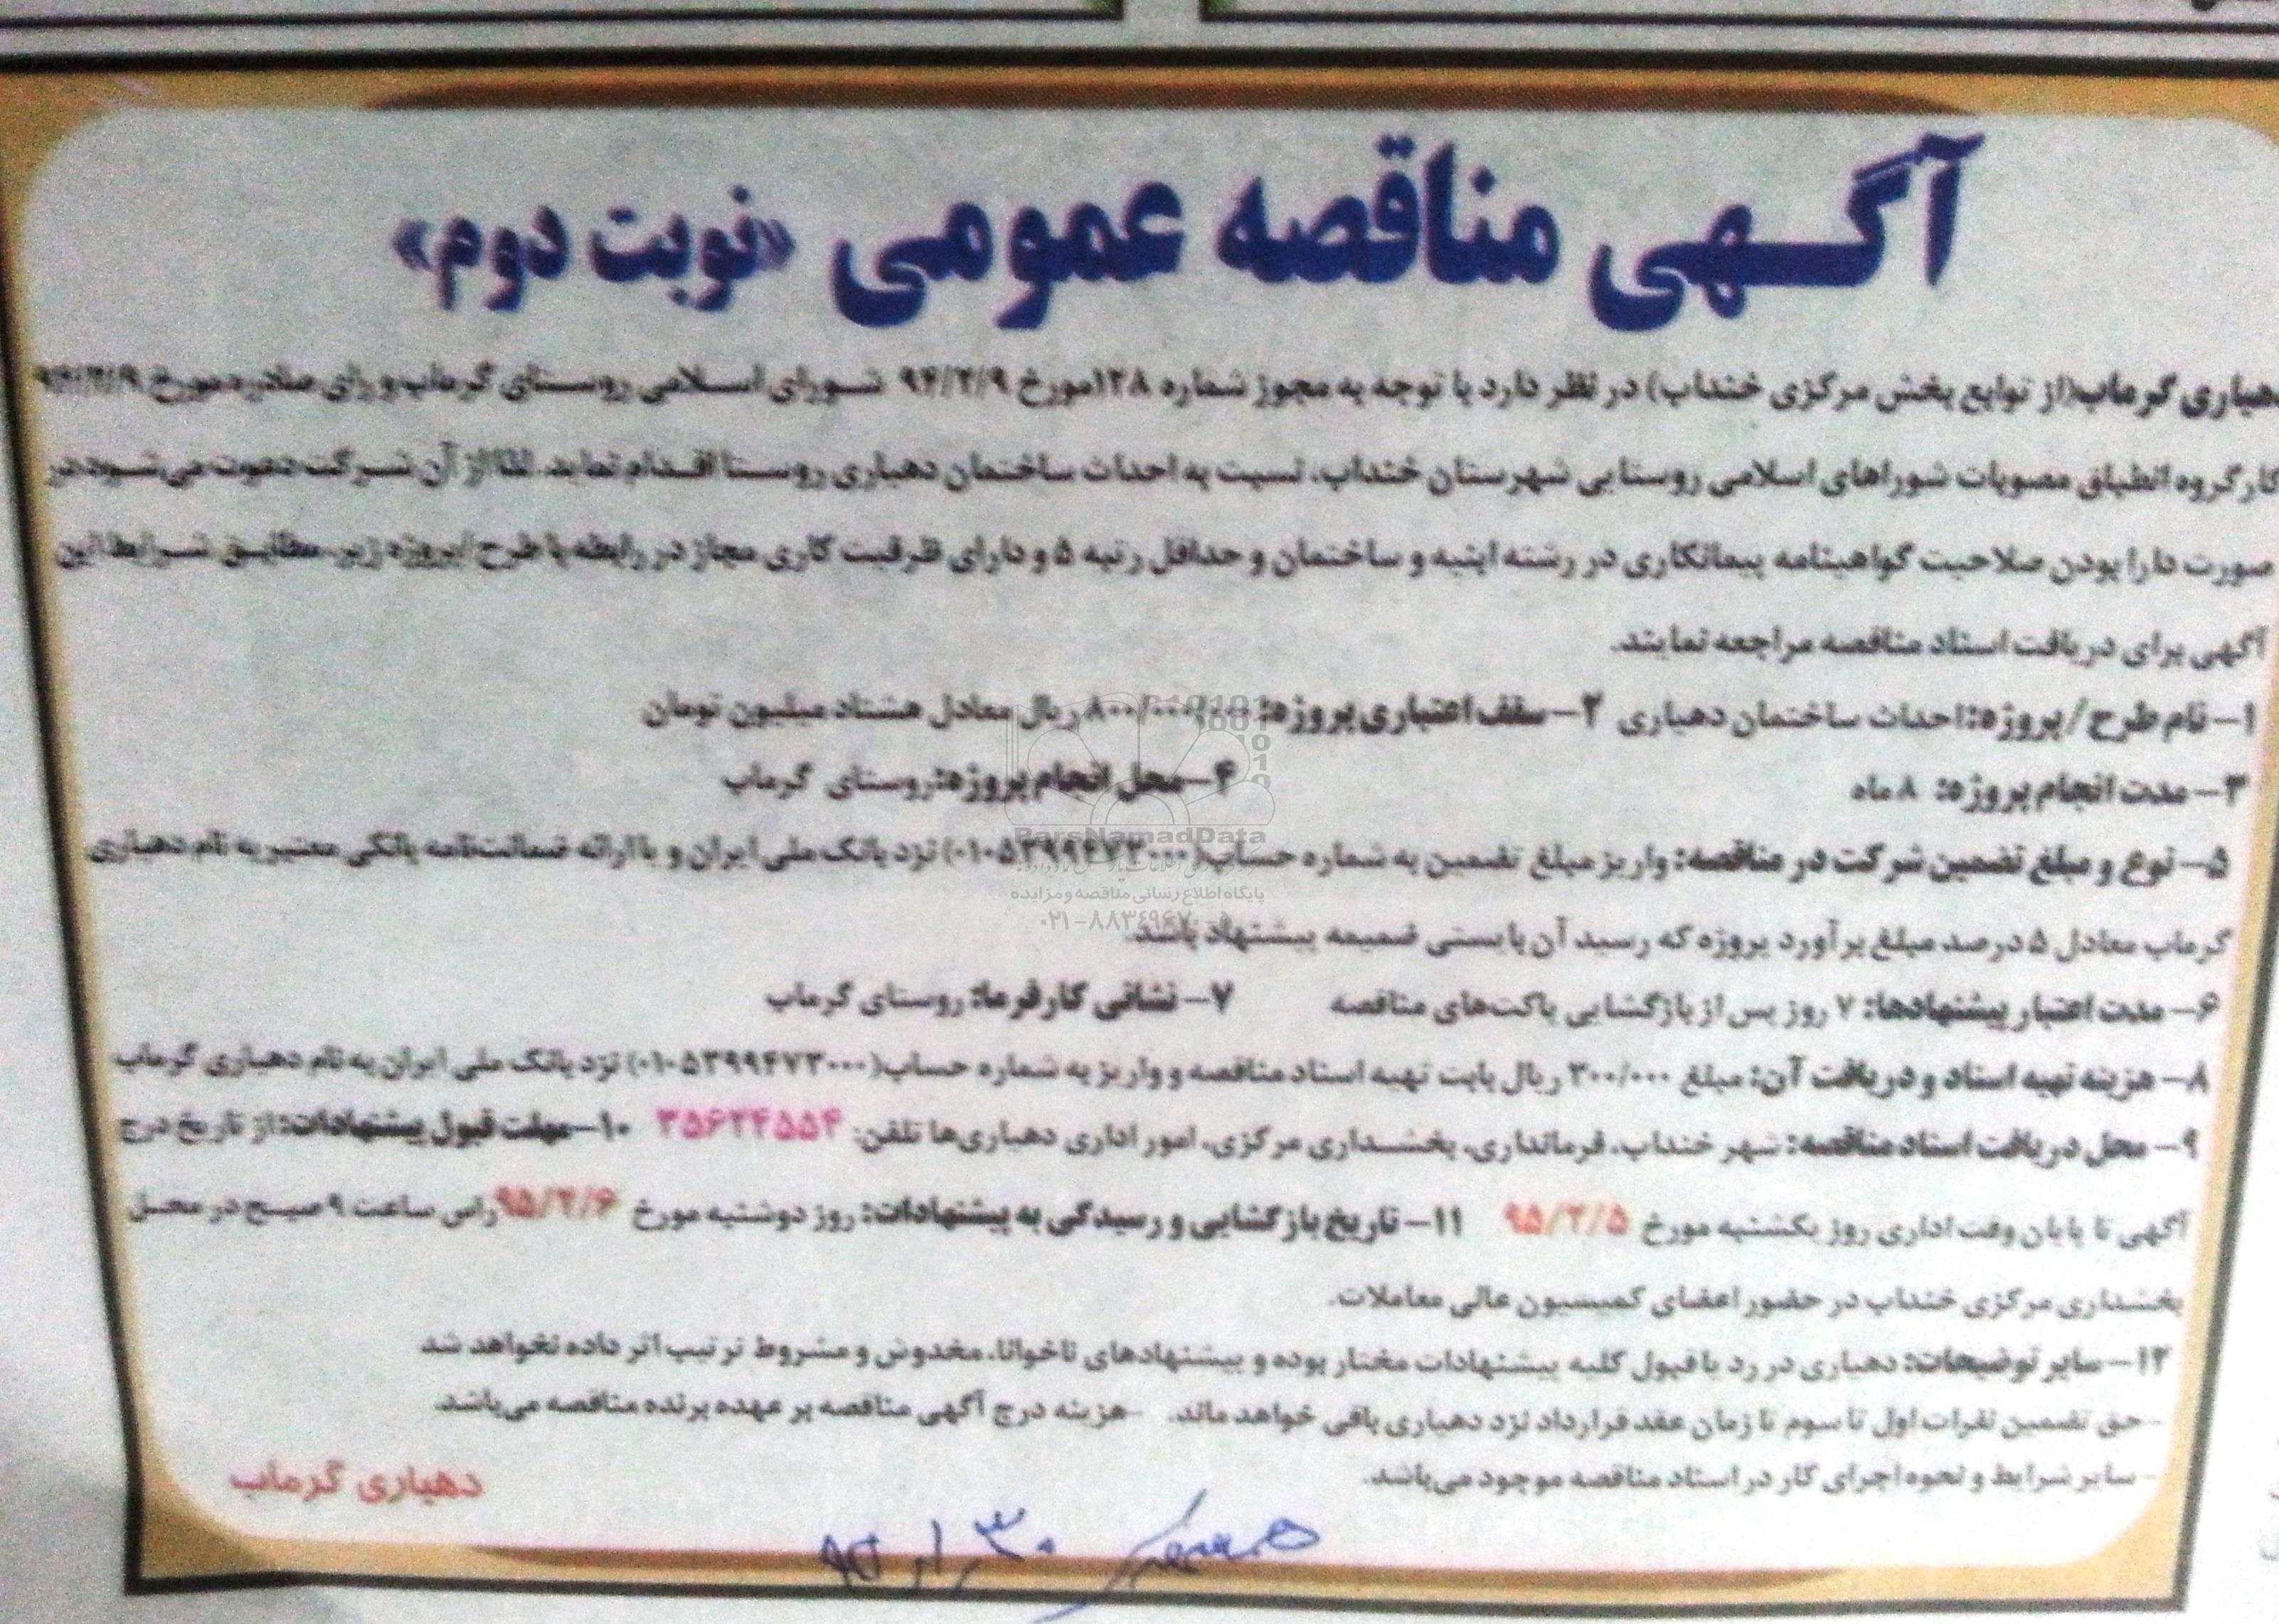 آگهی مناقصه عمومی «نوبت دوم»
دهیاری گرماب(از توابع بخش مرکزی خنداب) در نظر دارد با توجه به مجوز شماره ۱۲۸مورخ ۹۴/۲/۹ شورای اسلامی روستای گرماب و رای صادره مورخ
کارگروه انطباق مصوبات شوراهای اسلامی روستایی شهرستان خنداب، نسبت به احداث ساختمان دهیاری روستا اقدام نماید. لذا از آن شرکت دعوت می‌شود در
صورت دارا بودن صلاحیت گواهینامه پیمانکاری در رشته ابنیه و ساختمان و حداقل رتبه ۵ و دارای ظرفیت کاری مجاز در رابطه با طرح/پروژه زیر، مطابق شرایط این
آگهی برای دریافت اسناد مناقصه مراجعه نمایند.
۱- نام طرح/پروژه: احداث ساختمان دهیاری ۲- سقف اعتباری پروژه: ۸۰۰/۰۰۰/۰۰۰ ریال معادل هشتاد میلیون تومان
۳- مدت انجام پروژه: ۸ ماه ۴- محل انجام پروژه: روستای گرماب
۵- نوع و مبلغ تضمین شرکت در مناقصه: واریز مبلغ تضمین به شماره حساب(۰۱۰۵۳۹۹۴۷۳۰۰۰) نزد بانک ملی ایران و یا ارائه ضمانت‌نامه بانکی معتبر به نام دهیاری
گرماب معادل ۵ درصد مبلغ برآورد پروژه که رسید آن بایستی ضمیمه پیشنهاد باشد.
۶- مدت اعتبار پیشنهادها: ۷ روز پس از بازگشایی پاکت‌های مناقصه ۷- نشانی کارفرما: روستای گرماب
۸- هزینه تهیه اسناد و دریافت آن: مبلغ ۳۰۰/۰۰۰ ریال بابت تهیه اسناد مناقصه و واریز به شماره حساب(۰۱۰۵۳۹۹۴۷۳۰۰۰) نزد بانک ملی ایران به نام دهیاری گرماب
۹- محل دریافت اسناد مناقصه: شهر خنداب، فرمانداری، بخشداری مرکزی، امور اداری دهیاری‌ها تلفن: ۳۵۶۲۴۵۵۴ ۱۰- مهلت قبول پیشنهادات: از تاریخ درج
آگهی تا پایان وقت اداری روز یکشنبه مورخ ۹۵/۲/۵ ۱۱- تاریخ بازگشایی و رسیدگی به پیشنهادات: روز دوشنبه مورخ ۹۵/۲/۶ راس ساعت ۹ صبح در محل
بخشداری مرکزی خنداب در حضور اعضای کمیسیون عالی معاملات.
۱۲- سایر توضیحات: دهیاری در رد یا قبول کلیه پیشنهادات مختار بوده و پیشنهادهای ناخوانا، مخدوش و مشروط ترتیب اثر داده نخواهد شد
-حق تضمین نفرات اول تا سوم تا زمان عقد قرارداد نزد دهیاری باقی خواهد ماند. -هزینه درج آگهی مناقصه بر عهده برنده مناقصه می‌باشد.
- سایر شرایط و نحوه اجرای کار در اسناد مناقصه موجود می‌باشد.
دهیاری گرماب
۹۵/۱/۳۰
ParsNamadData
پایگاه اطلاع رسانی مناقصه و مزایده
۰۲۱-۸۸۳۴۹۶۷۰-۵